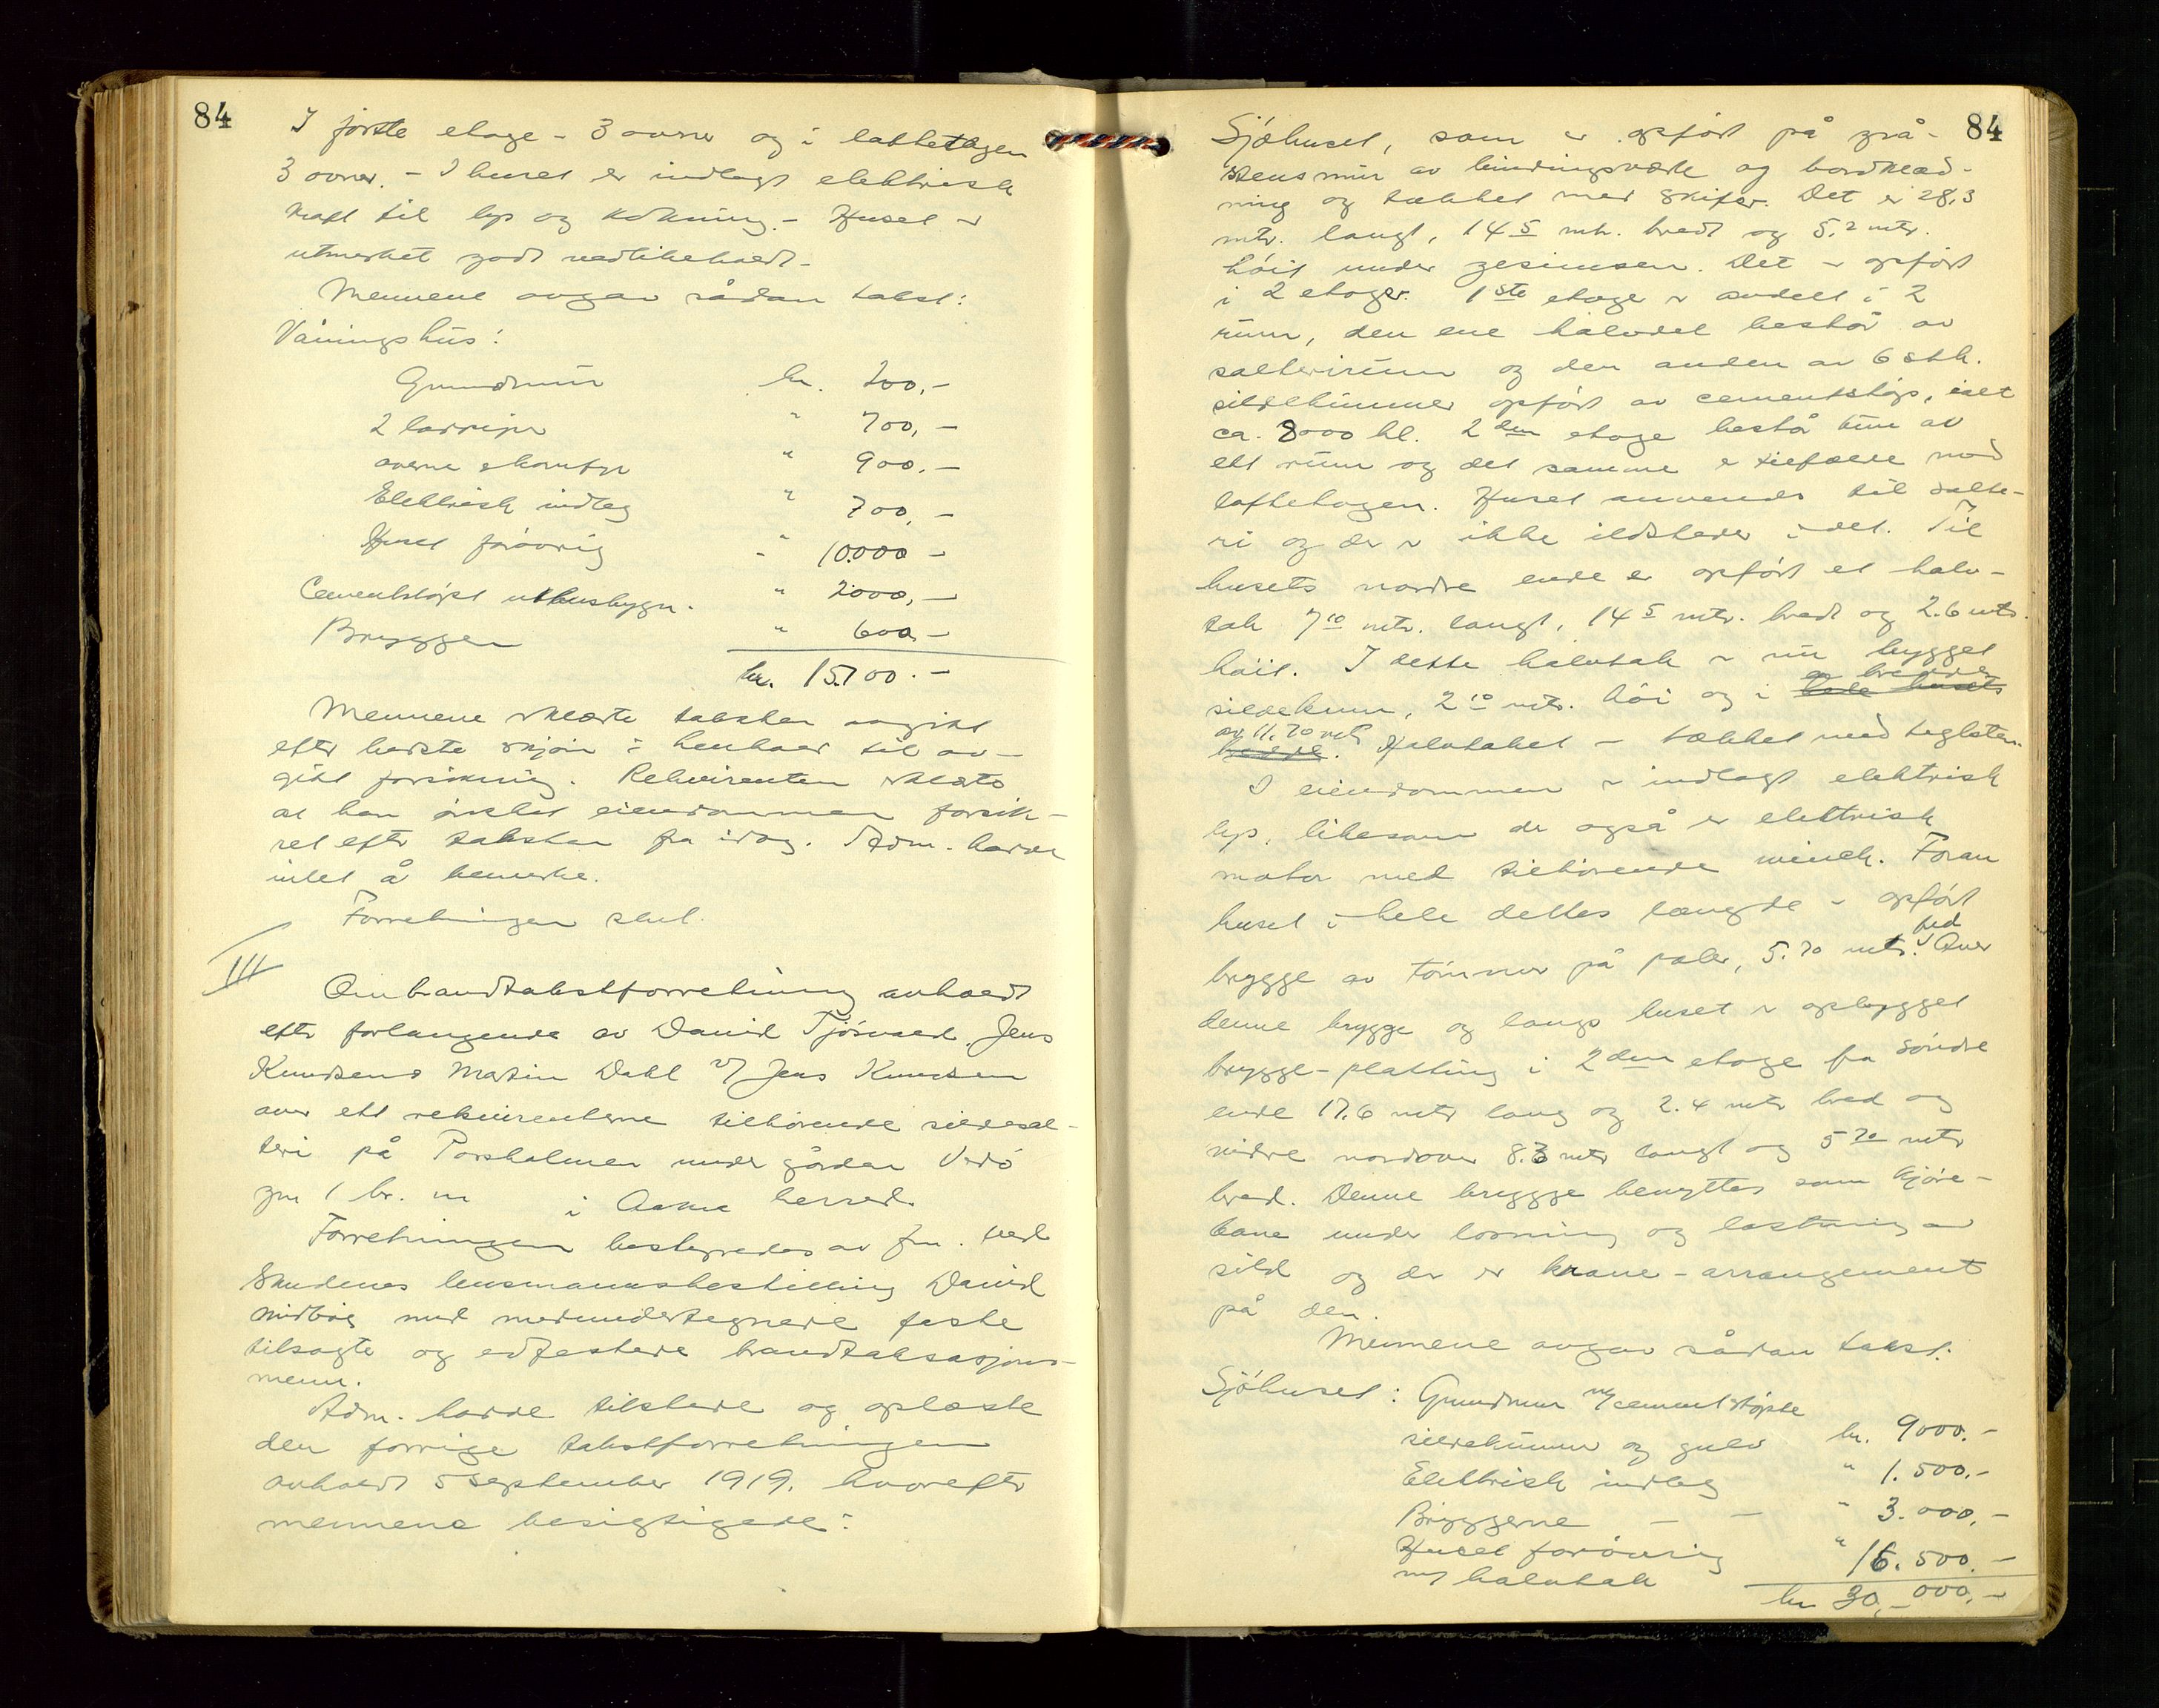 84
I første etage - 3 ovner og i loftetagen
3 ovner. - I huset er indlagt elektrisk
kraft til lys og kokning. - Huset er
utmerket godt vedlikeholdt.
Mennene avgav sådan takst:
Våningshus:
Grundmur kr. 200,-
2 " 700,-
ovne komfyr " 900.-
Elektrisk indlæg " 700,-
Huset forøvrig " 10000 -
Cementstøpt uthusbygn. " 2000,-
Bryggen " 600 -
kr. 15.100.-
Mennene erklærte taksten avgitt
efter bedste skjøn i henhold til av-
gitt forsikring. Rekvirenten erklærte
at han ønsket eiendommen forsik-
ret efter taksten fra idag. Adm. hadde
intet å bemerke.
Forretningen slut.
III
Ombrandtakstforretning avholdt
efter forlangende av David Tjösvold, Jens
Knudsen & Martin Dahl v/ Jens Knudsen
over ett rekvirenterne tilhørende sildesal-
teri på Porsholmen under gården Vedø
gnr 1 br. nr i Aakra herred.
Forretningen bestyredes av fm. ved
Skudenes lensmannsbestilling David
Midbøe med medundertegnede faste
tilsagte og edfestede brandtaksasjons-
menn.
Adm. hadde tilstede og oplæste
den forrige takstforretningen
avholdt 5 september 1919, hvorefter
mennene besigtigede:
84
Sjøhuset, som er opført på grå-
stensmur av bindingsverk og bordklæd-
ning og tækket med skifer. Det er 28,3
mtr. langt, 14 5 mtr. bredt og 5,2 mtr.
høit under gesimsen. Det er opført
i 2 etager. 1ste etage er avdelt i 2
rum, den ene halvdel består av
salterirum og den anden av 6 stk.
sildekummer opført av cementstøp, ialt
ca. 8000 hl. 2den etage består kun av
ett rum og det samme er tilfælle med
loftetagen. Huset anvendes til salte-
ri og der er ikke ildsteder i det. Til
husets nordre ende er opført et halv-
tak 7 10 mtr. langt, 14 5 mtr. bredt og 2.6 mtr.
høit. I dette halvtak er nu bygget
sildekum, 2 10 mtr. høi og i en bredde
av 11,70 mtr. Halvtaket er tækket med teglsten.
I eiendommen er indlagt elektrisk
lys, likesom der også er elektrisk
motor med tilhørende winch. Foran
huset i hele dettes længde er opført
brygge av tømmer på pæler, 5.70 mtr. bred. Over
denne brygge og langs huset er opbygget
brygge-platting i 2den etage fra søndre
ende 17.6 mtr lang og 2.4 mtr bred og
videre nordover 8.3 mtr langt og 5 70 mtr
bred. Denne brygge benyttes som kjøre-
bane under losning og lastning av
sild og der er krane-arrangement
på den.
Mennene avgav sådan takst:
Sjøhuset: Grundmur m/cementstøpte
sildekummer og gulv kr. 9000.-
Elektrisk indlæg " 1.500.-
Bryggerne - - " 3.000,-
Huset forøvrig " 16.500.-
m/ halvtak
kr 30,-000,-